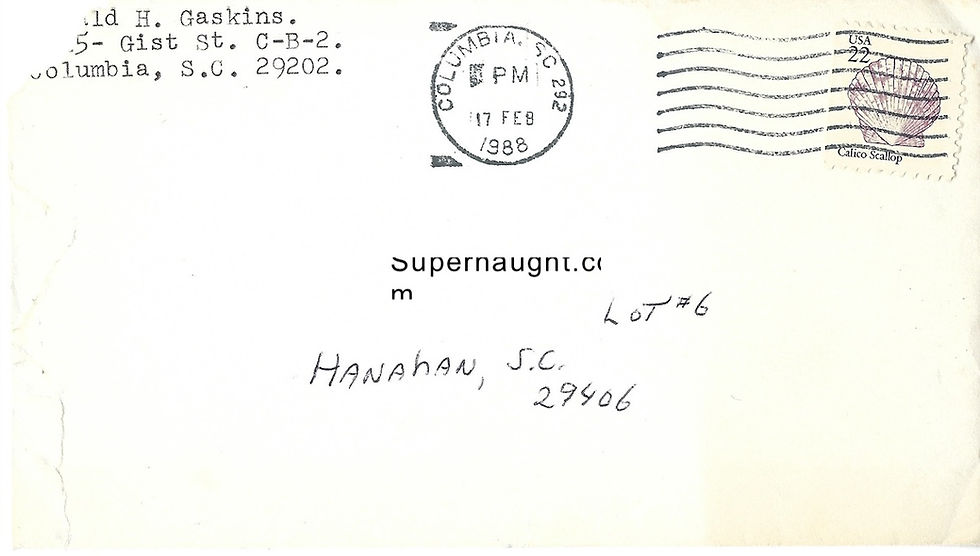 ld H. Gaskins.
5- Gist St. C-B-2.
olumbia, S.C. 29202.
COLUMBIA, SC 292
PM
17 FEB
1988
USA
22
Calico Scallop
Supernaught.co
m
LOT #6
HANAHAN, S.C.
29406